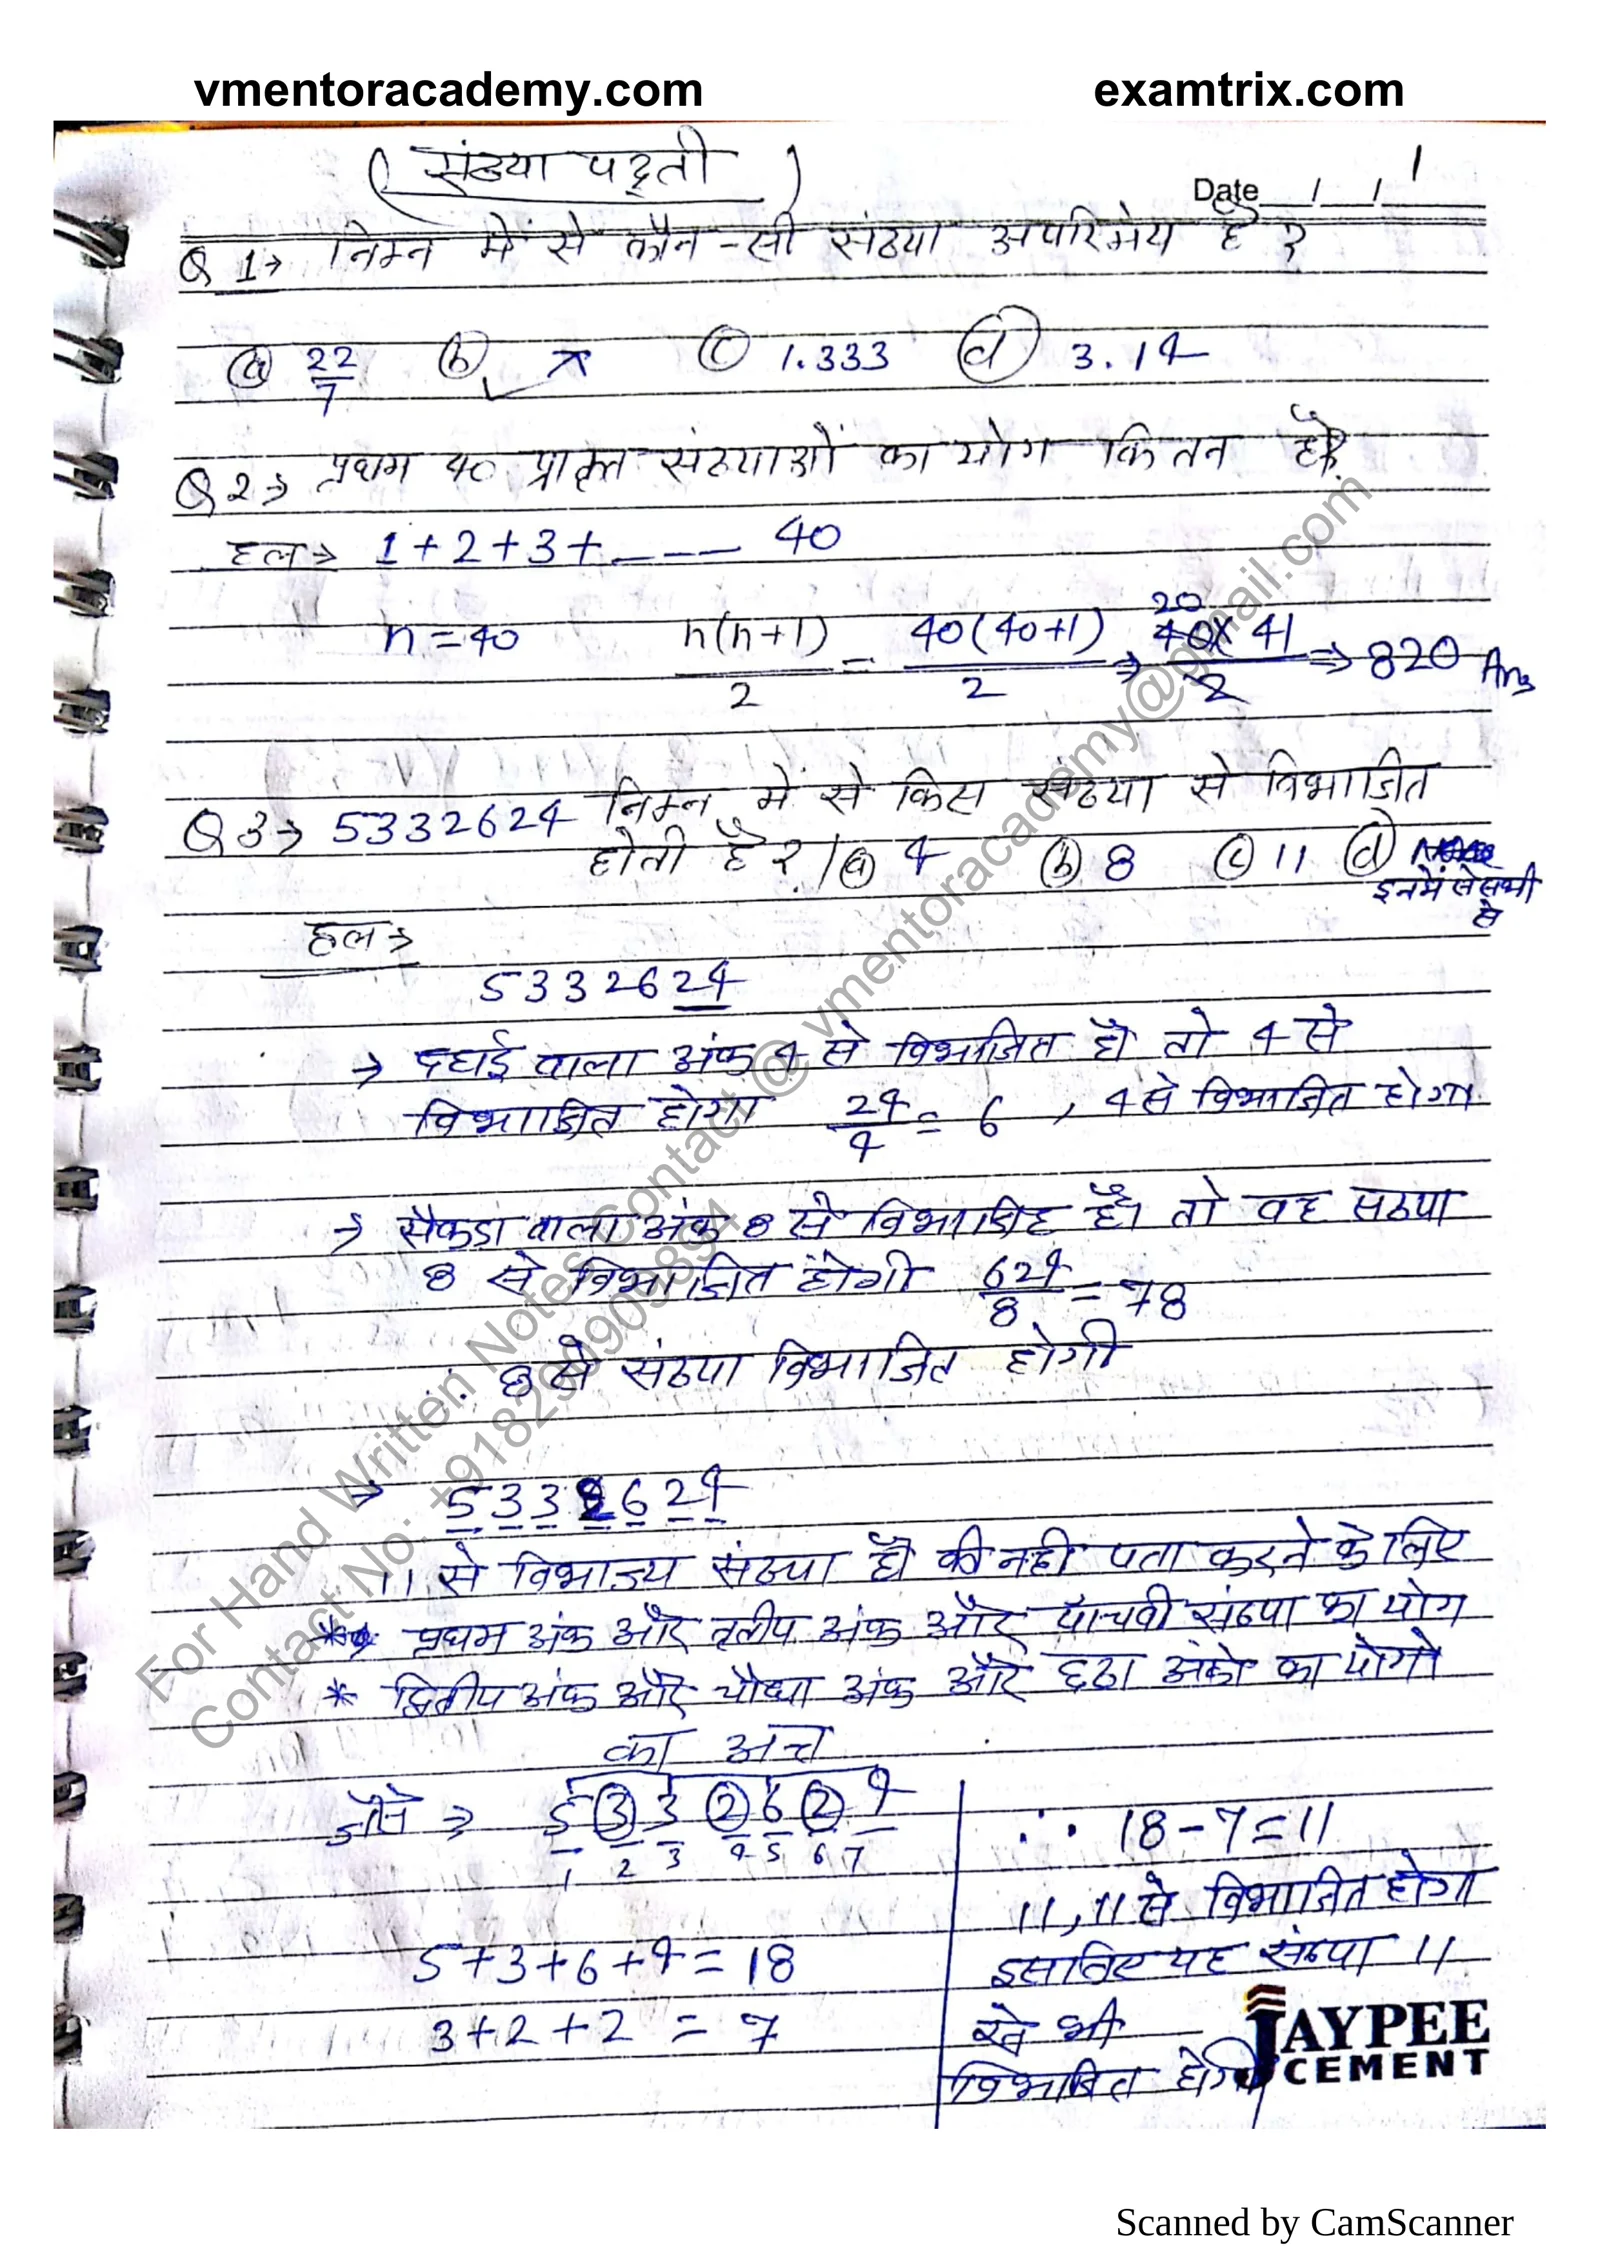 vmentoracademy.com examtrix.com
(संख्या पद्द्ती)
Date / / 1
Q 1→ निम्न में से कौन-सी संख्या अपरिमेय है ?
(a) 22/7 (b) π (c) 1.333 (d) 3.14
Q 2→ प्रथम 40 प्राकृत संख्याओं का योग कितन है?
हल→ 1+2+3+---- 40
n=40 n(n+1)/2 = 40(40+1)/2 → 20 40×41/2 ⇒ 820 Ans
Q 3→ 5332624 निम्न में से किस संख्या से विभाजित
होती है ? / (a) 4 (b) 8 (c) 11 (d)
इनमें से सभी
से
हल→
5332624
→ दहाई वाला अंक 4 से विभाजित हो तो 4 से
विभाजित होगा 24/4 = 6 , 4 से विभाजित होगा
→ सैकडा वाला अंक 8 से विभाजित है। तो वह सख्या
8 से विभाजित होगी 624/8 = 78
∴ 8 से संख्या विभाजित होगी
→ 5332624
11 से विभाज्य संख्या है की नही पता करने के लिए
* प्रथम अंक और तृतीय अंक और पाँचवी संख्या का योग
* द्वितीय अंक और चौथा अंक और छठा अंको का योगो
का अन्त
जैसे ⇒ 5 3 3 2 6 2 4
1 2 3 4 5 6 7
5+3+6+4=18
3+2+2 = 7
∴ 18-7=11
11, 11 से विभाजित होगा
इसलिए यह संख्या 11
से भी
विभाजित होगी
JAYPEE
CEMENT
For Hand Written Notes Contact @ vmentoracademy@gmail.com
Scanned by CamScanner